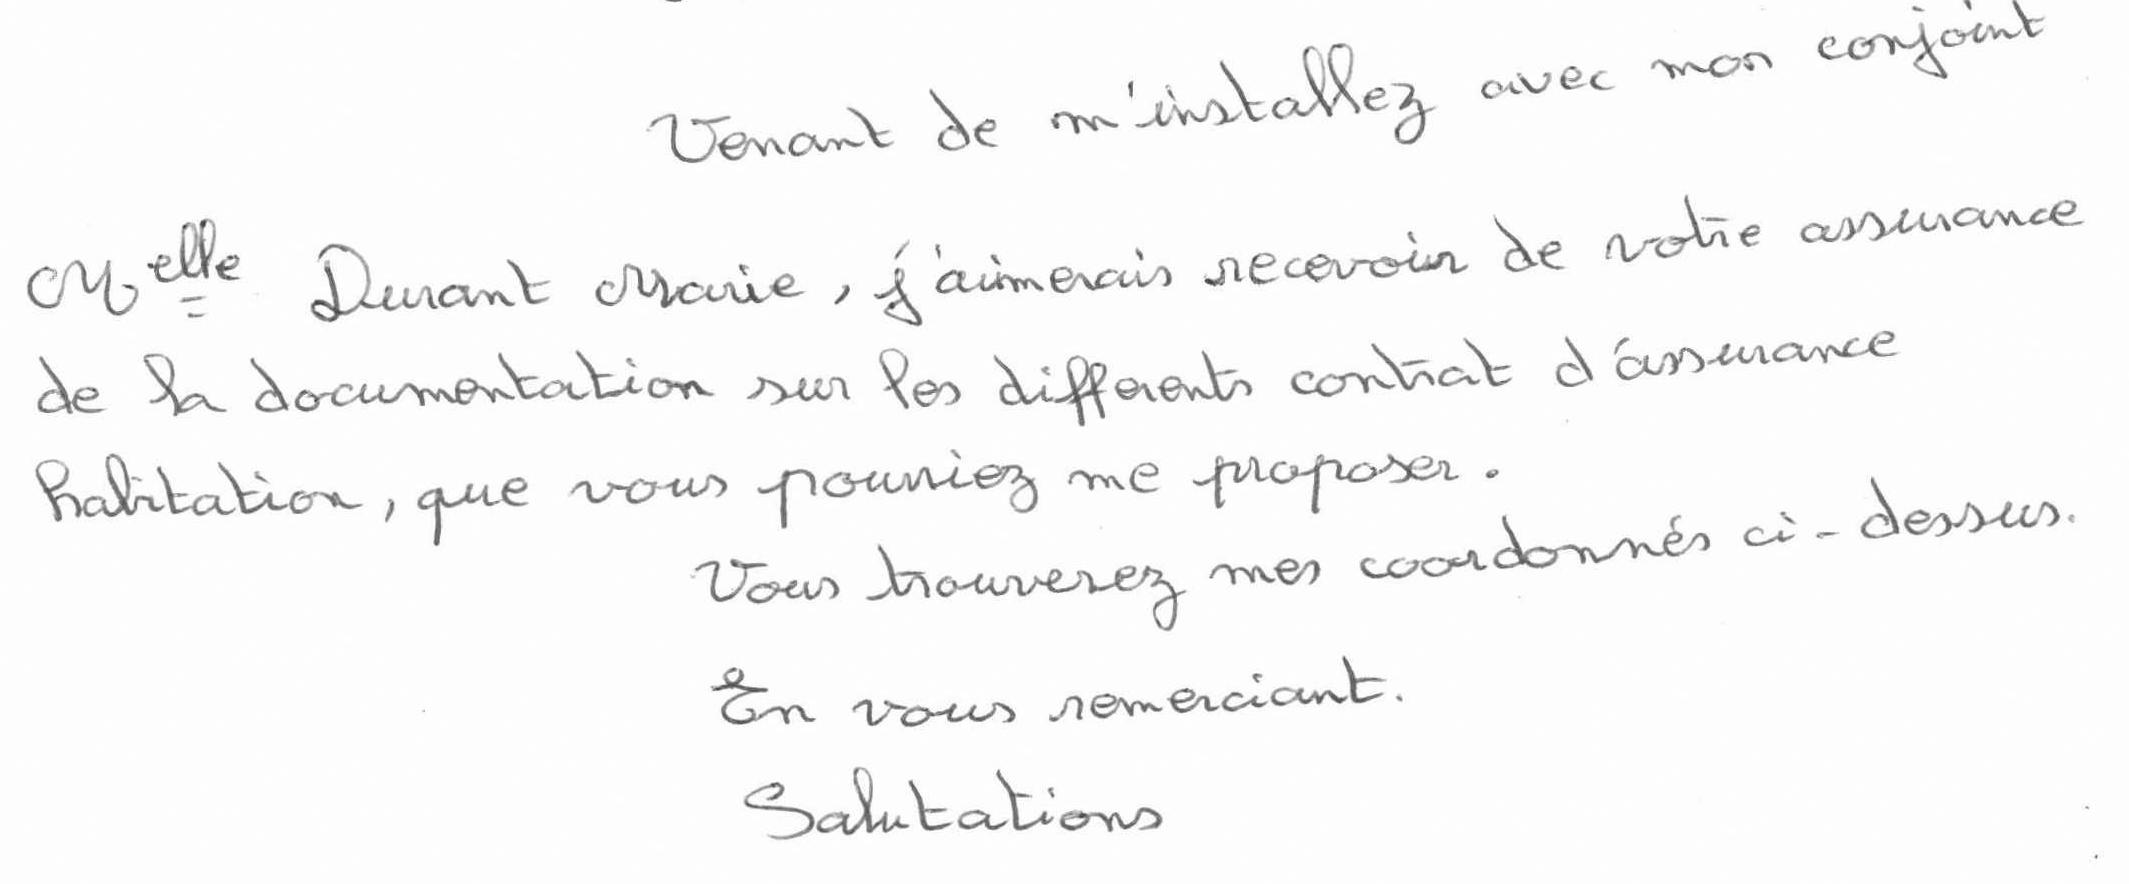 Venant de m'installez avec mon conjoint
Melle Durant Marie, j'aimerais recevoir de votre assurance
de la documentation sur les differents contrat d'assurance
habitation, que vous pourriez me proposer.
Vous trouverez mes coordonnés ci-dessus.
En vous remerciant.
Salutations